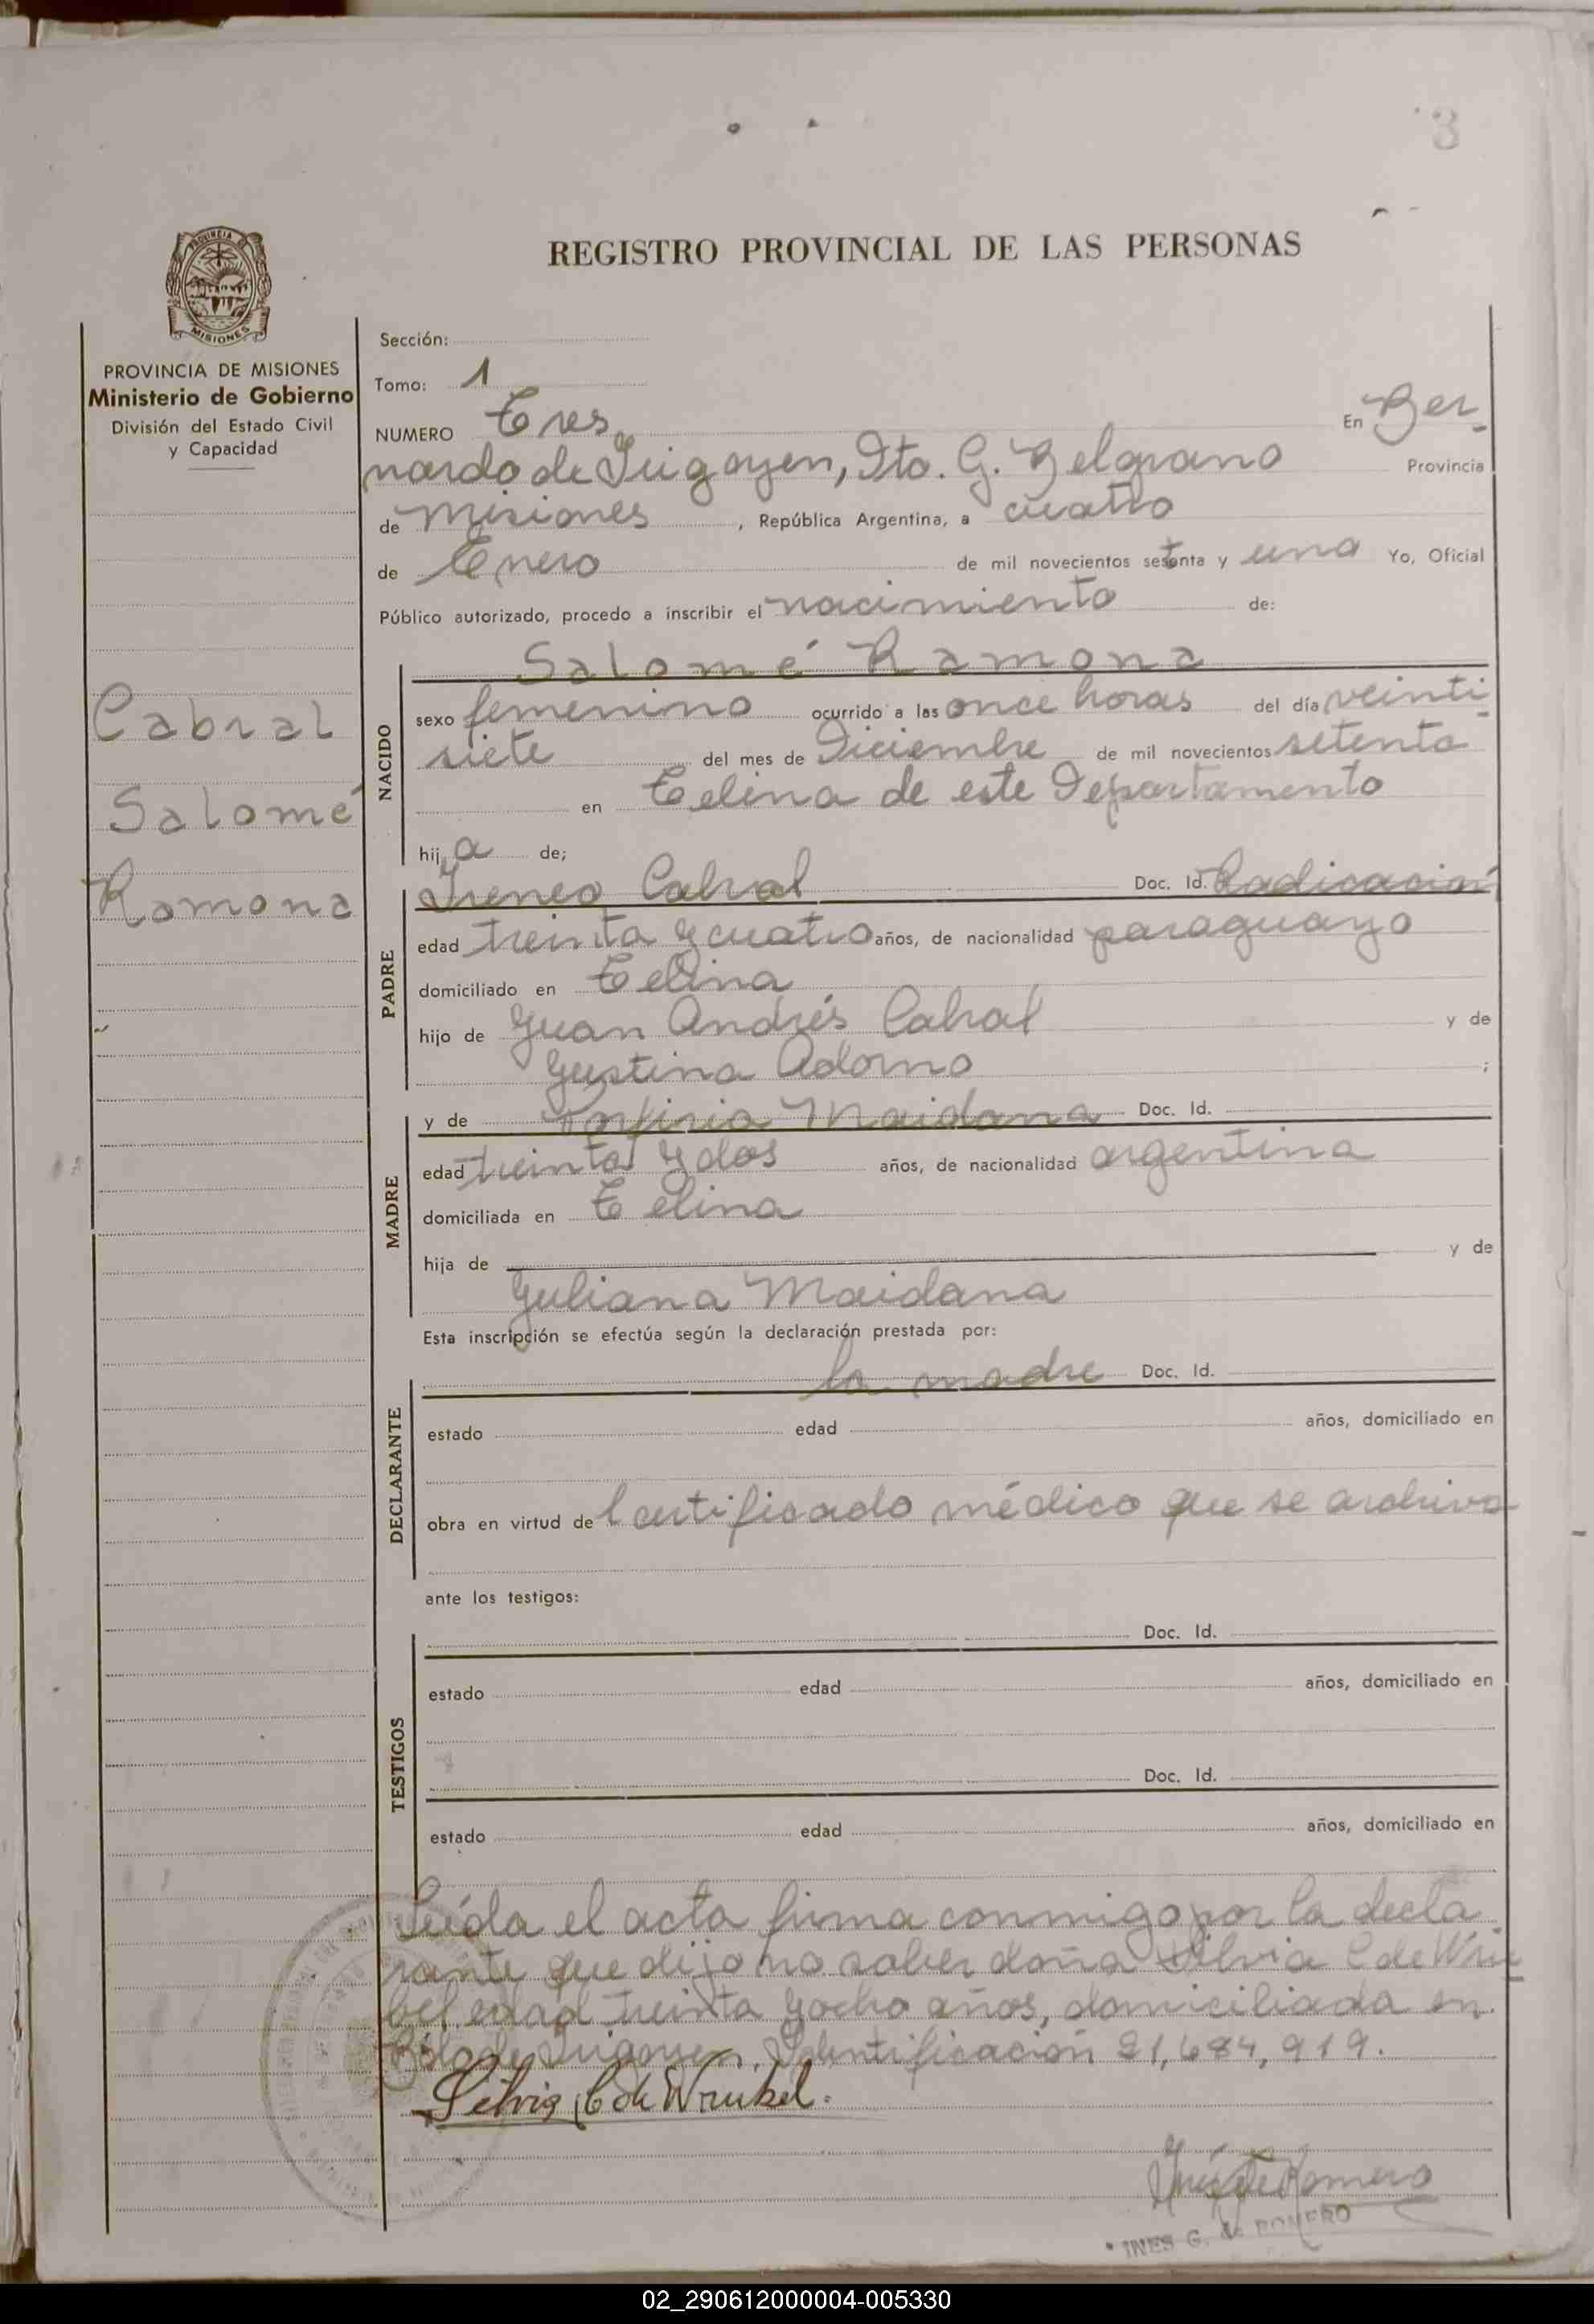 3
REGISTRO PROVINCIAL DE LAS PERSONAS
PROVINCIA DE
MISIONES
PROVINCIA DE MISIONES
Ministerio de Gobierno
División del Estado Civil
y Capacidad
Cabral
Salomé
Ramona
Sección:
Tomo: 1
NUMERO Tres En Ber-
nardo de Irigoyen, Dto. G. Belgrano Provincia
de Misiones, República Argentina, a cuatro
de Enero de mil novecientos setenta y uno Yo, Oficial
Público autorizado, procedo a inscribir el nacimiento de:
Salomé Ramona
NACIDO
sexo femenino ocurrido a las once horas del día veinti-
siete del mes de Diciembre de mil novecientos setenta
en Celina de este Departamento
hija de;
PADRE
Ireneo Cabral Doc. Id. Radicación
edad treinta y cuatro años, de nacionalidad paraguayo
domiciliado en Celina
hijo de Juan Andrés Cabral y de
Justina Adorno ;
MADRE
y de Porfiria Maidana Doc. Id.
edad treinta y dos años, de nacionalidad argentina
domiciliada en Celina
hija de y de
Juliana Maidana
Esta inscripción se efectúa según la declaración prestada por:
DECLARANTE
la madre Doc. Id.
estado edad años, domiciliado en
obra en virtud de Certificado médico que se archiva
ante los testigos:
TESTIGOS
Doc. Id.
estado edad años, domiciliado en
Doc. Id.
estado edad años, domiciliado en
Leída el acta firma conmigo por la decla
rante que dijo no saber doña Silvia C de Wru
bel edad treinta y ocho años, domiciliada en
Bdo de Irigoyen. Identificación 21,684,919.
Silvia C de Wrubel.
Inés G de Romero
INES G. de ROMERO
02_290612000004-005330